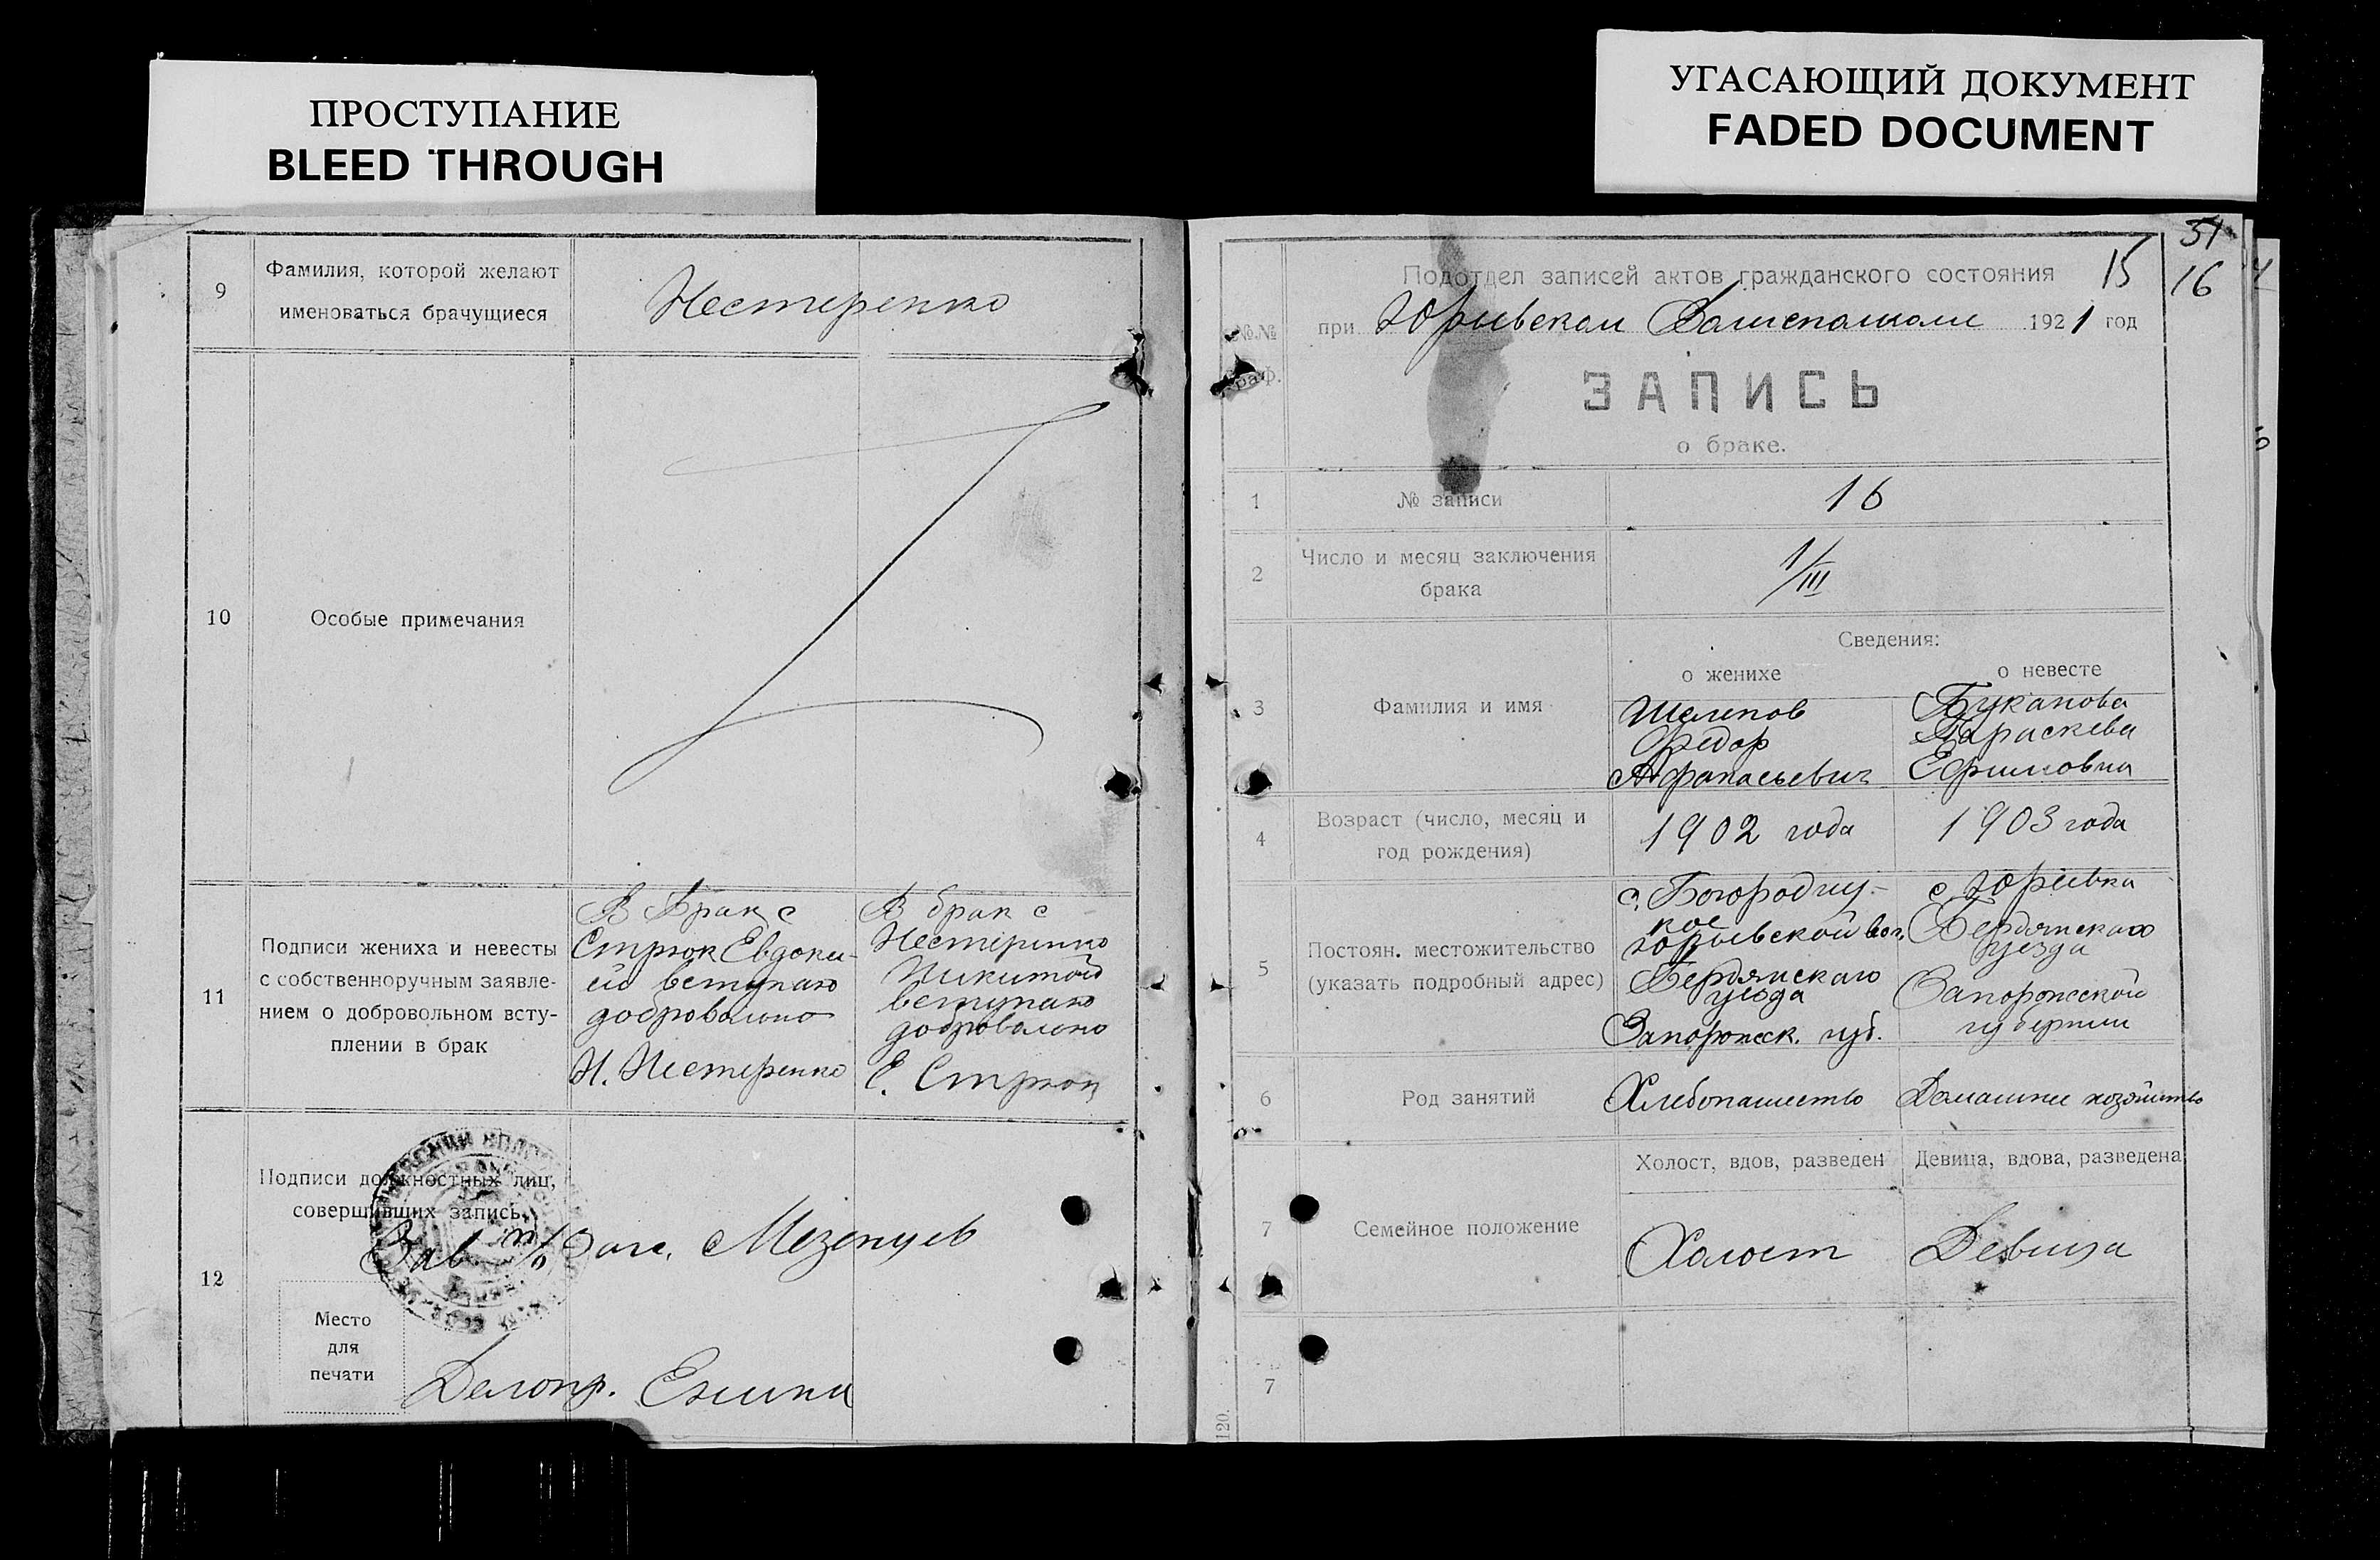 ПРОСТУПАНИЕ
BLEED THROUGH
УГАСАЮЩИЙ ДОКУМЕНТ
FADED DOCUMENT
9
Фамилия, которой желают
именоваться брачущиеся
Нестеренко
10
Особые примечания
11
Подписи жениха и невесты
с собственноручным заявле-
нием о добровольном всту-
плении в брак
В Брак с
Стрюк Евдоки-
ей вступаю
добровольно
Н. Нестеренко
В брак с
Нестеренко
Никитой
вступаю
добровольно
Е. Стрюк
12
Подписи должностных лиц,
совершивших запись.
Зав. п/о Загс. Мезенцев
Место
для
печати
Делопр.
51
15
16
Подотдел записей актов гражданского состояния
№№
граф.
при Юрьевском 1921 год
ЗАПИСЬ
о браке.
1
№ записи
16
2
Число и месяц заключения
брака
1/III
Сведения:
о женихе
о невесте
3
Фамилия и имя
Шелепов
Федор
Афанасьевич
Буканова
Параскева
Ефимовна
4
Возраст (число, месяц и
год рождения)
1902 года
1903 года
5
Постоян. местожительство
(указать подробный адрес)
с. Богородиц-
кое
Юрьевской вол.
Бердянскаго
уезда
Запорожск. губ.
с. Юрьевка
Бердянскаго
уезда
Запорожской
губернии
6
Род занятий
Хлебопашество
Домашнее хозяйство
7
Семейное положение
Холост, вдов, разведен
Девица, вдова, разведена
Холост
Девица
7
120.